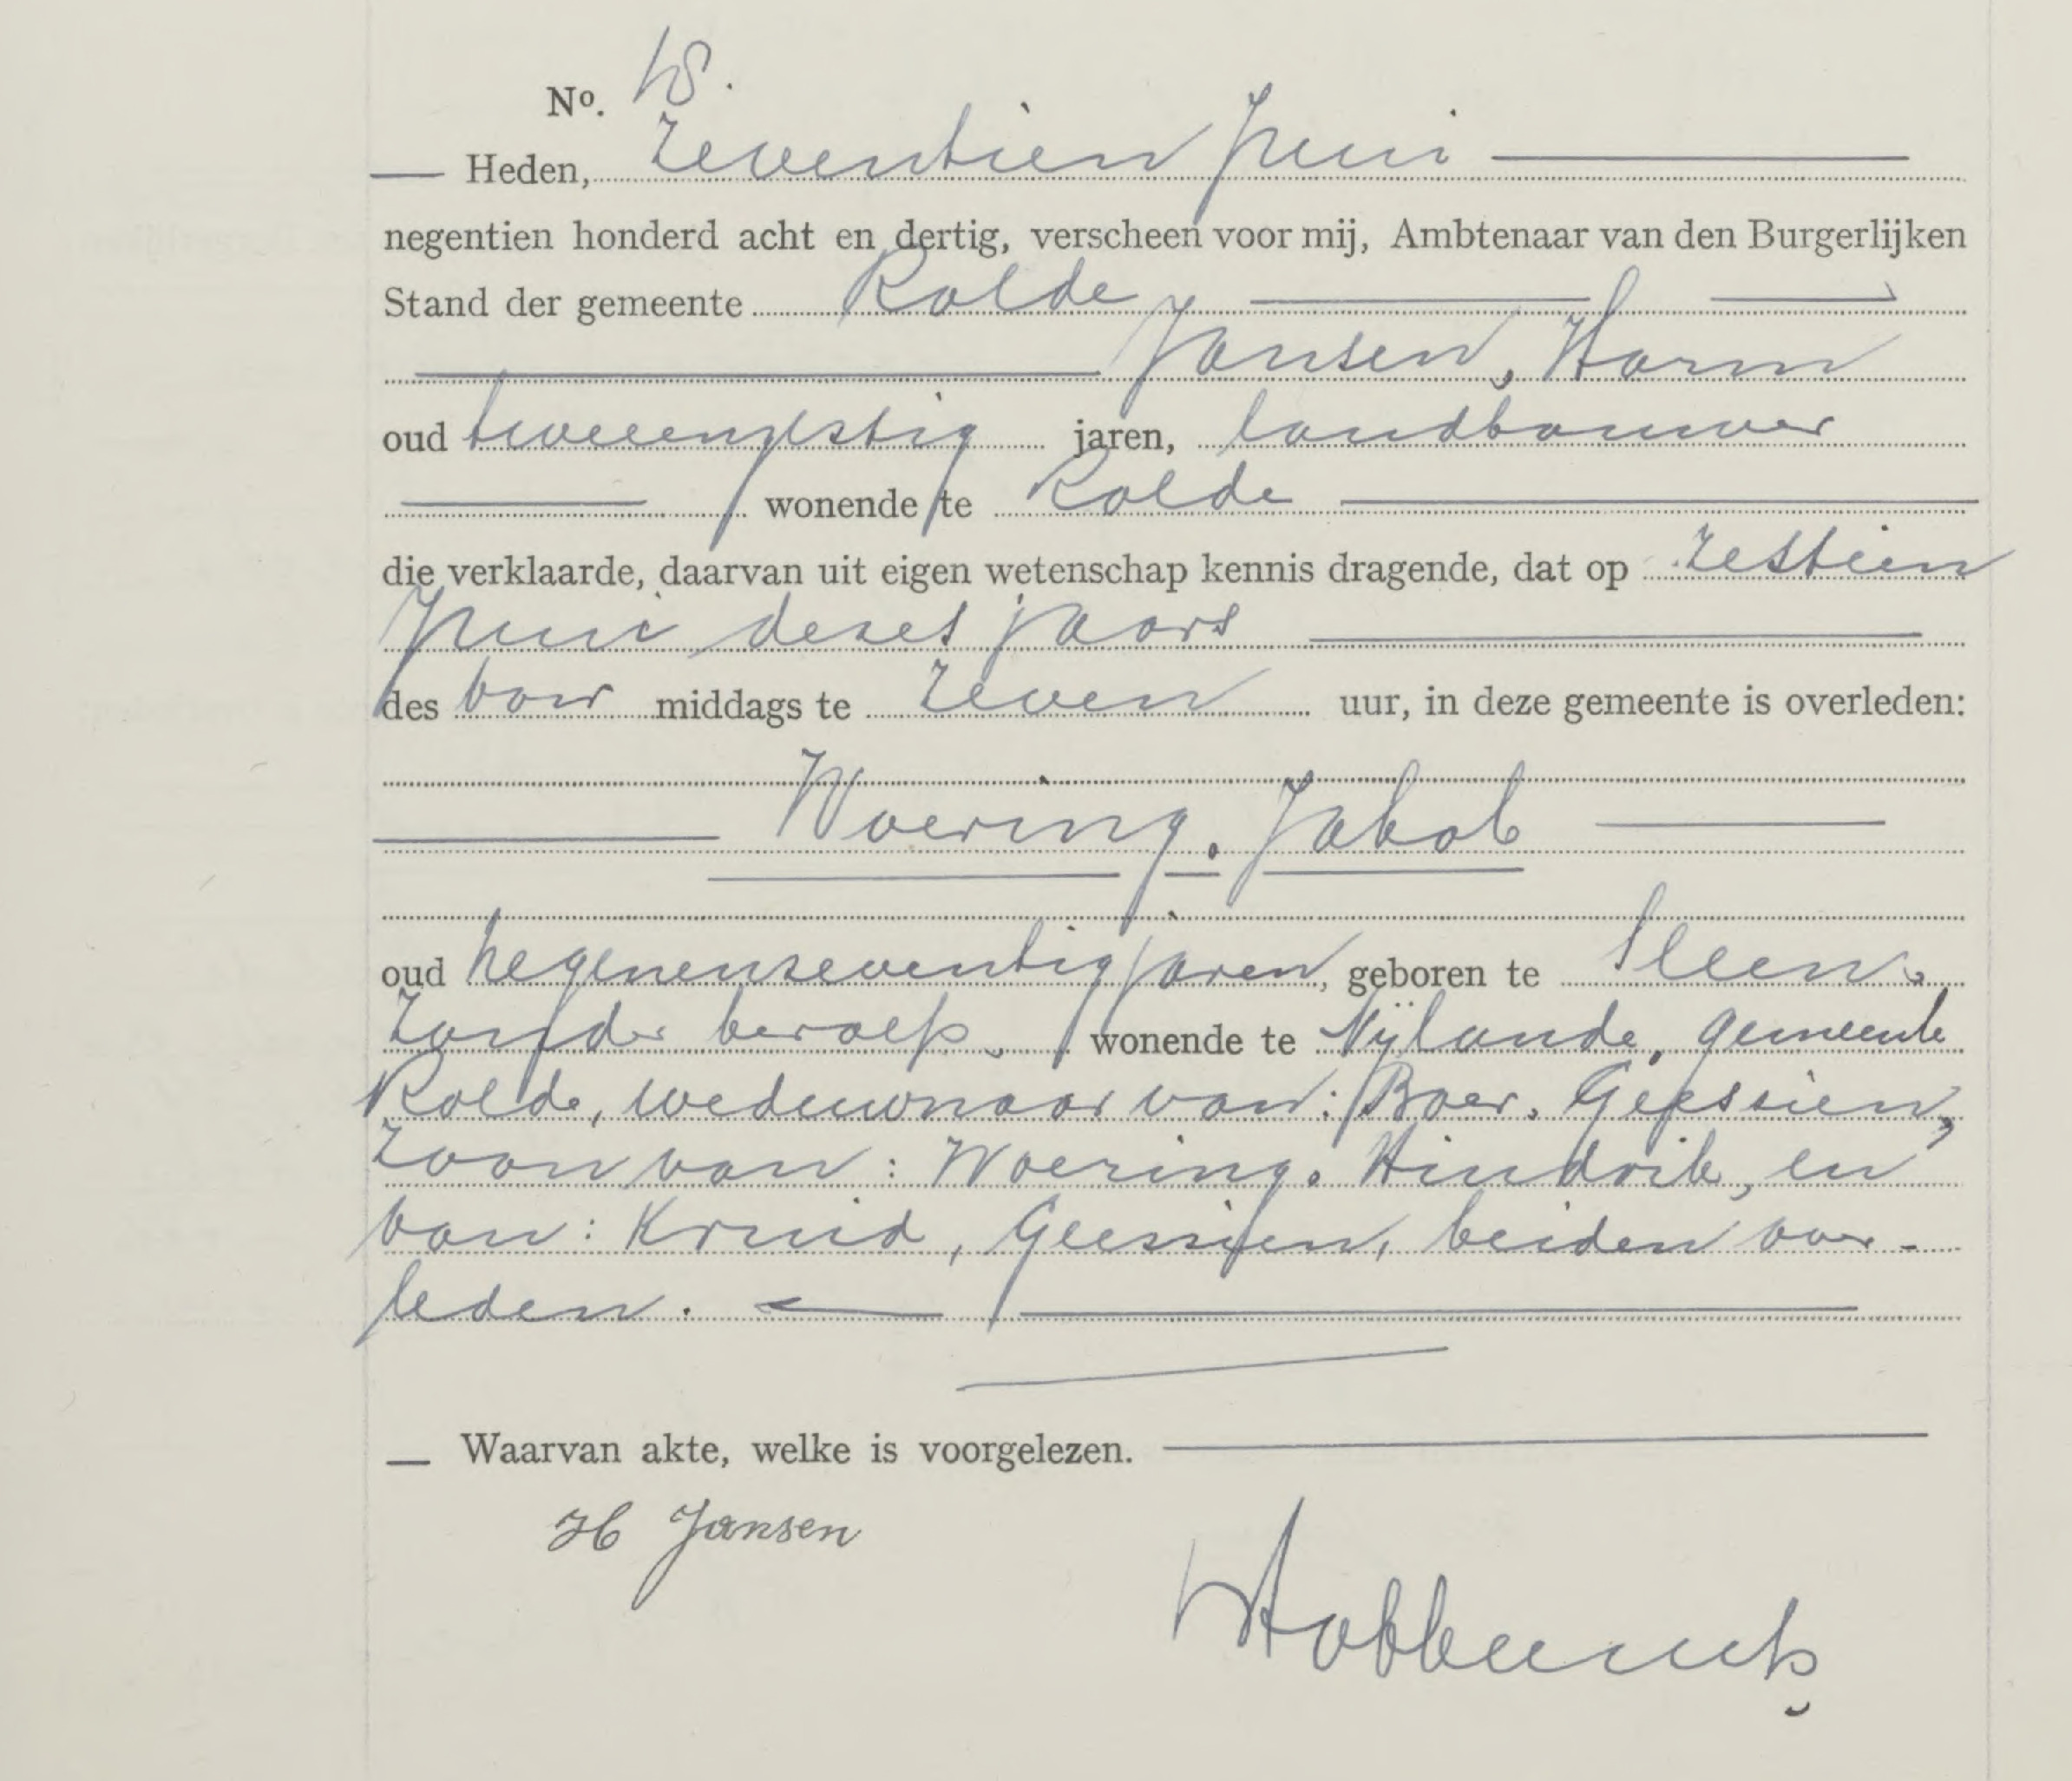 No. 18.
Heden, zeventien Juni
negentien honderd acht en dertig, verscheen voor mij, Ambtenaar van den Burgerlijken
Stand der gemeente Rolde
Jansen, Harm
oud tweeenzestig jaren, landbouwer
wonende te Rolde
die verklaarde, daarvan uit eigen wetenschap kennis dragende, dat op zestien
Juni dezes jaars
des voor middags te zeven uur, in deze gemeente is overleden:
Woering, Jakob
oud negenenzeventig jaren, geboren te Sleen,
zonder beroep, wonende te Nijlande, gemeente
Rolde, weduwnaar van: Boer, Geessien,
zoon van: Woering, Hindrik, en
van: Kruid, Geessien, beiden over-
leden.
Waarvan akte, welke is voorgelezen.
H Jansen